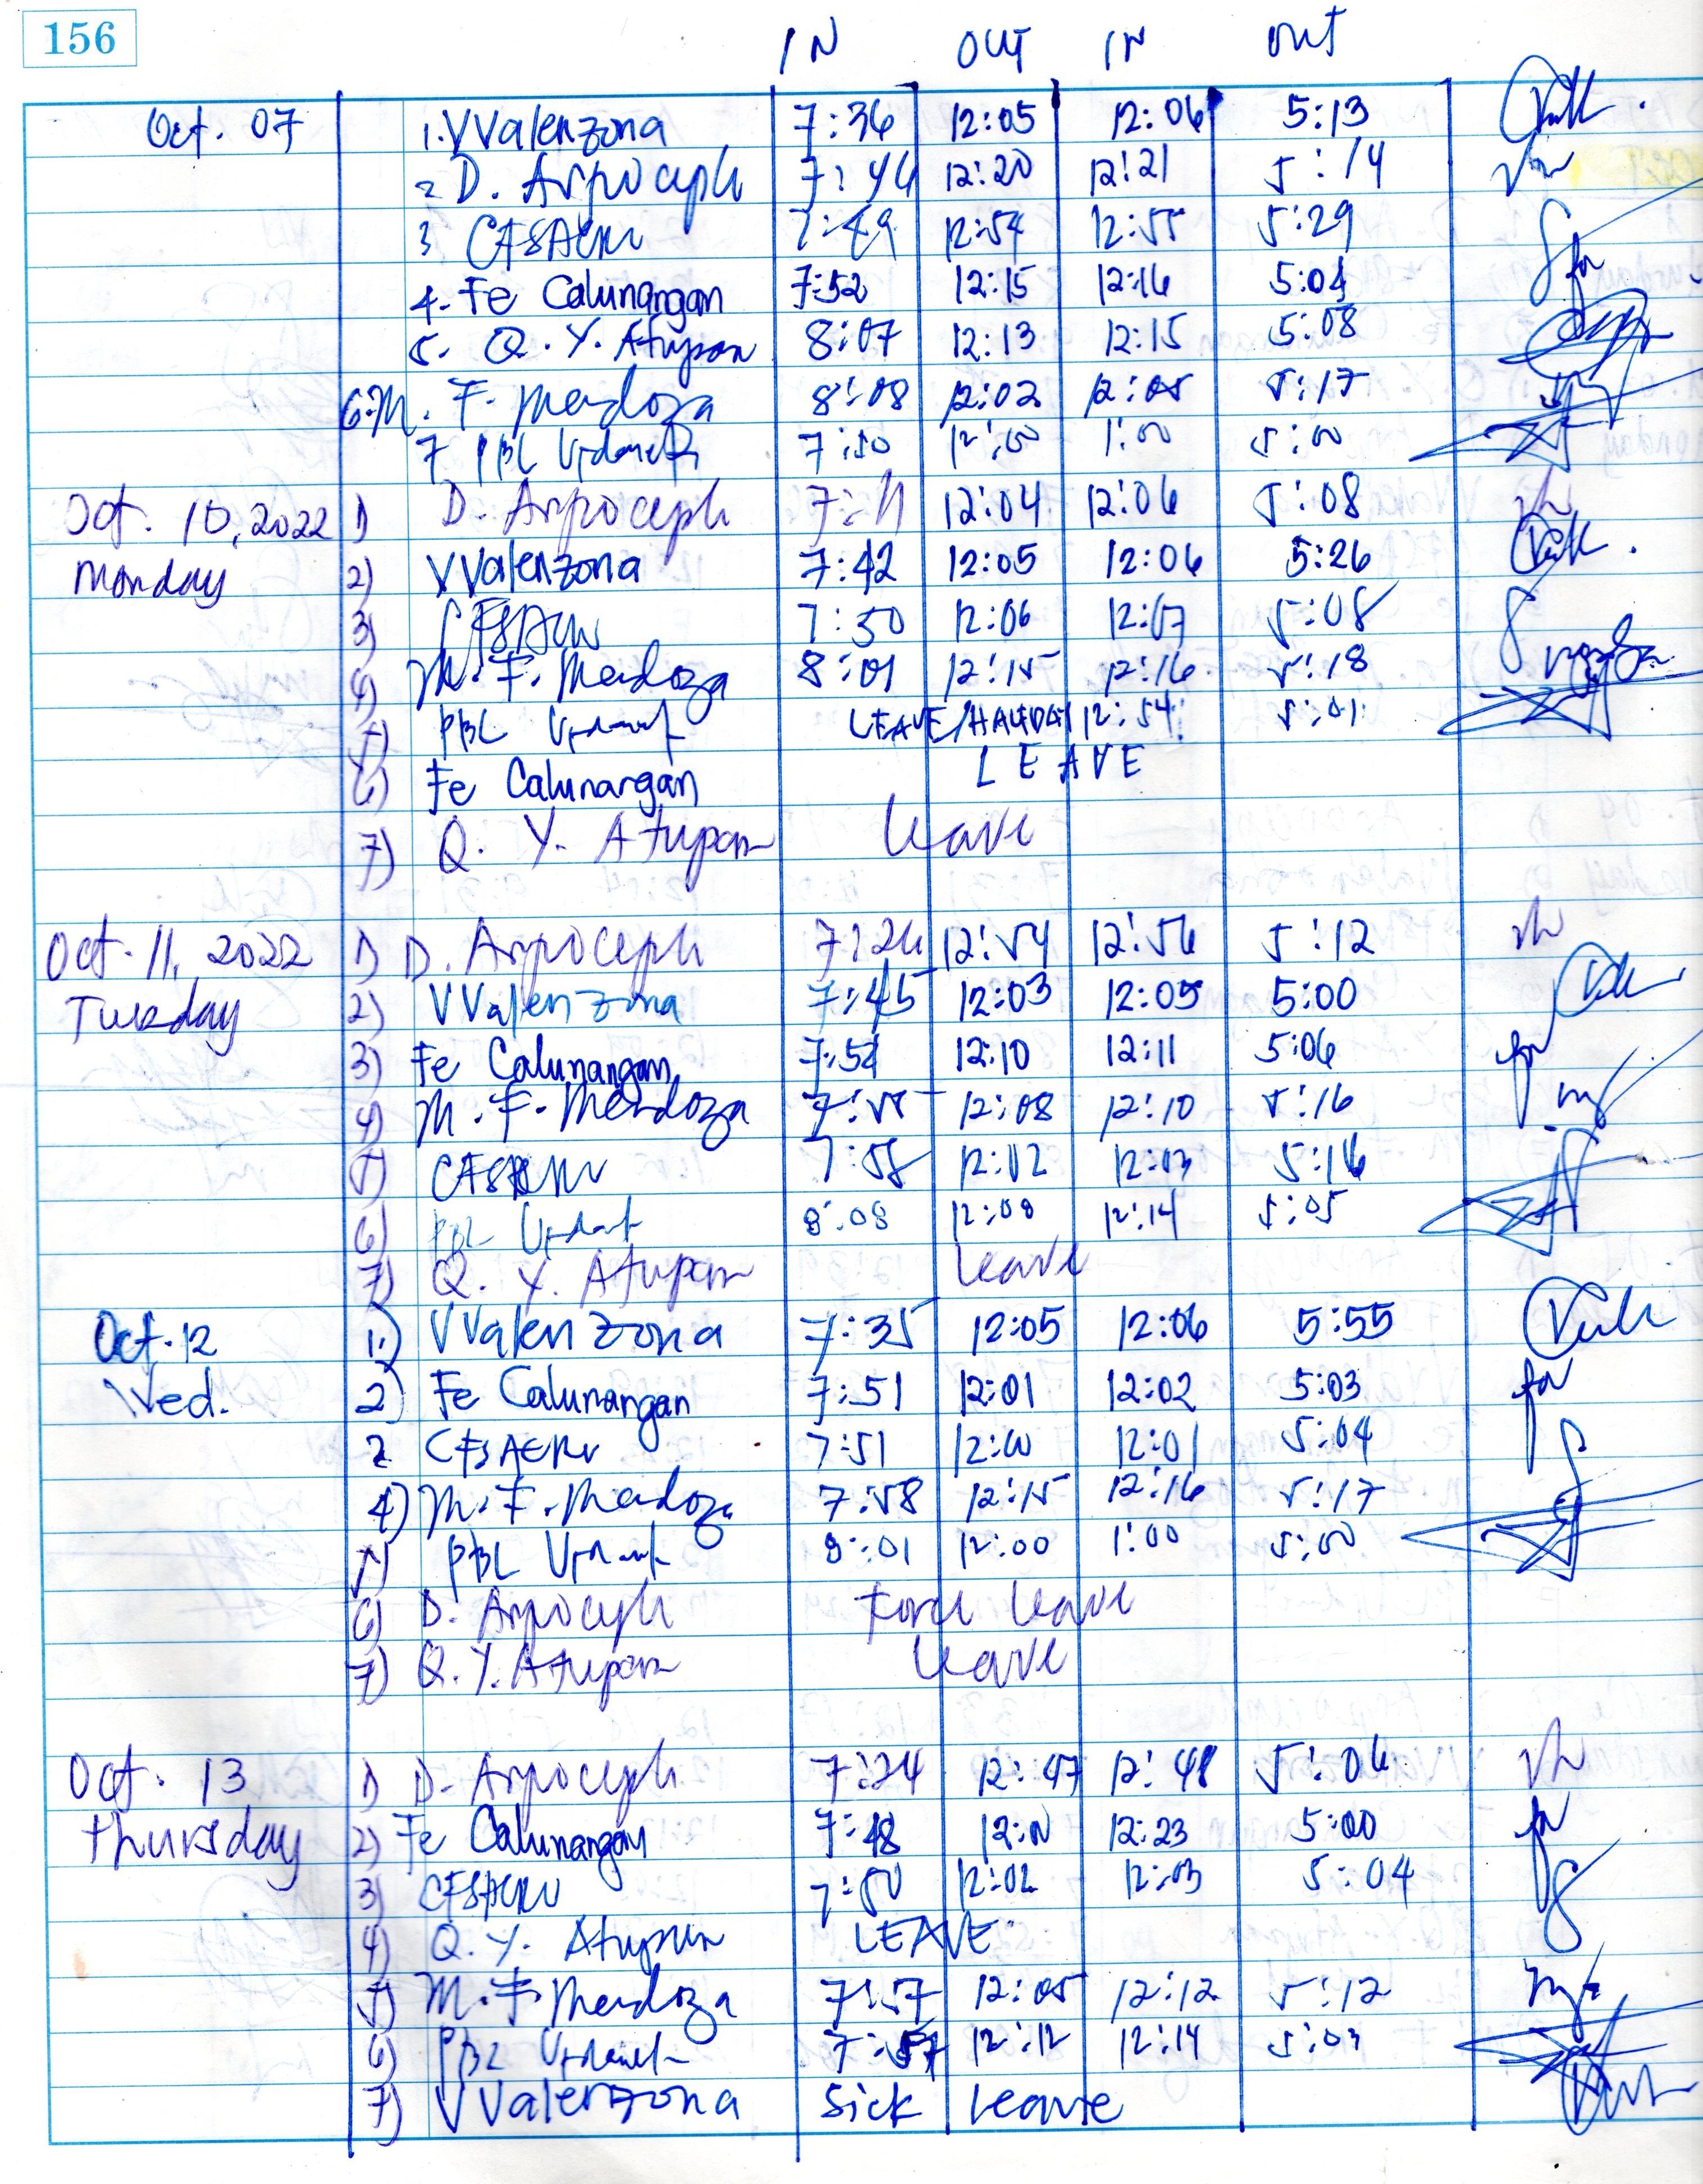 156
IN OUT IN OUT
Oct. 07 1. VValenzona 7:36 12:05 12:06 5:13
2 D. Arpoceph 7:44 12:20 12:21 5:14
3 7:49 12:54 12:55 5:29
4. Fe Calunangan 7:52 12:15 12:16 5:04
5. Q. Y. Atupan 8:07 12:13 12:15 5:08
6. M. F. Mendoza 8:08 12:02 12:05 5:17
7 PBL 7:50 12:00 1:00 5:00
Oct. 10, 2022 1) D. Arpoceph 12:04 12:06 5:08
Monday 2) VValenzona 7:42 12:05 12:06 5:26
3) 7:50 12:06 12:07 5:08
4) M. F. Mendoza 8:01 12:15 12:16 5:18
5) PBL LEAVE/HALFDAY 12:54 5:01
6) Fe Calunangan LEAVE
7) Q. Y. Atupan leave
Oct. 11, 2022 1) D. Arpoceph 7:24 12:54 12:56 5:12
Tuesday 2) VValenzona 7:45 12:03 12:05 5:00
3) Fe Calunangan 12:10 12:11 5:06
4) M. F. Mendoza 7:55 12:08 12:10 5:16
5) 7:58 12:02 12:03 5:16
6) PBL 8:08 12:08 12:14 5:05
7) Q. Y. Atupan leave
Oct. 12 1.) VValenzona 7:35 12:05 12:06 5:55
Wed. 2) Fe Calunangan 7:51 12:01 12:02 5:03
7:51 12:00 12:01 5:04
4) M. F. Mendoza 7:58 12:15 12:16 5:17
5) PBL 8:01 12:00 1:00 5:00
6) D. Arpoceph Force leave
7) Q. Y. Atupan leave
Oct. 13 1) D. Arpoceph 7:24 12:47 12:48 5:06
Thursday 2) Fe Calunangan 7:48 12:23 5:00
3) 7:50 12:02 12:03 5:04
4) Q. Y. Atupan LEAVE
5) M. F. Mendoza 7:57 12:05 12:12 5:12
6) PBL 7:57 12:12 12:14 5:03
7) VValenzona Sick leave